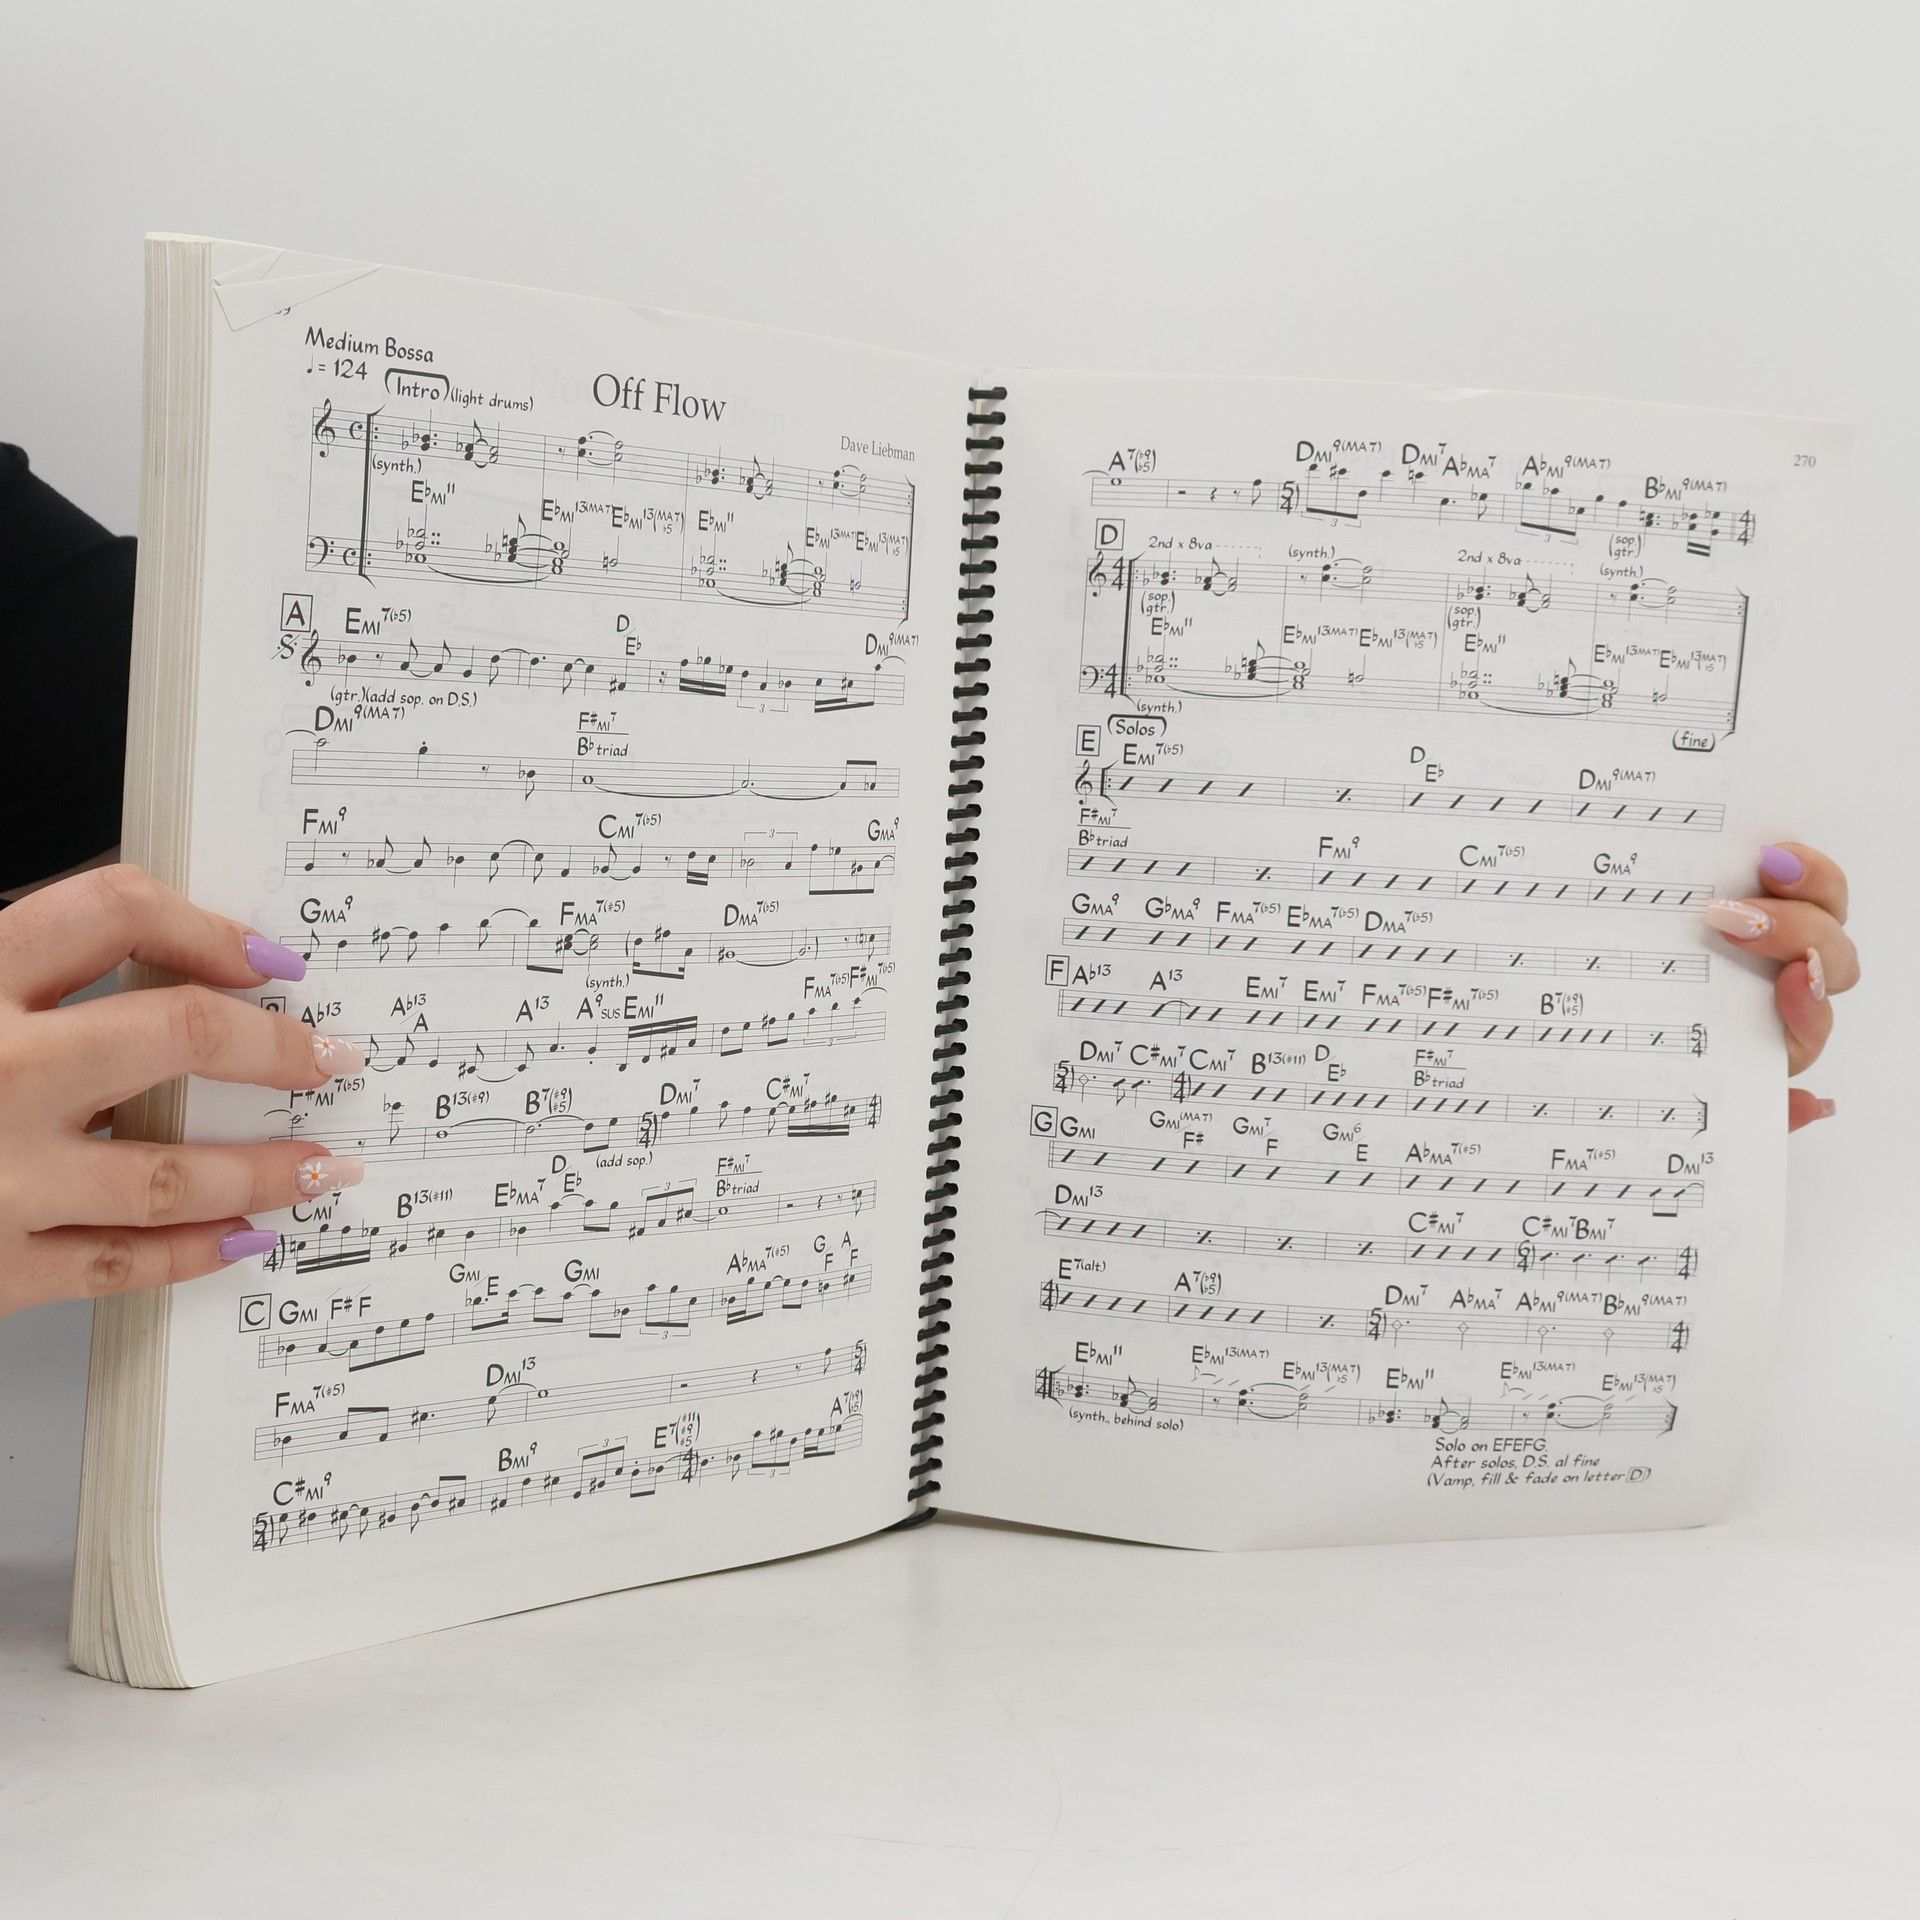 Medium Bossa
♩= 124
Intro (light drums)
Off Flow
Dave Liebman
(synth.)
E♭MI11 E♭MI13(MA7) E♭MI13(MA7 ♭5) E♭MI11 E♭MI13(MA7) E♭MI13(MA7 ♭5)
A EMI7(♭5) D/E♭ DMI9(MA7)
(gtr.)(add sop. on D.S.)
DMI9(MA7) F#MI7/B♭triad
FMI9 CMI7(♭5) GMA9
3
GMA9 FMA7(#5) DMA7(♭5)
(synth.)
A♭13 A♭13/A A13 A9SUS EMI11 FMA7(♭5) F#MI7(♭5)
F#MI7(♭5) B13(#9) B7(#9 #5) DMI7 C#MI7
5/4 4/4
(add sop.)
CMI7 B13(#11) E♭MA7 D/E♭ F#MI7/B♭triad
C GMI F# F GMI E GMI A♭MA7(#5) G/F A/F
3 3
FMA7(#5) DMI13
5/4
C#MI9 BMI9 E7(#11 #9 #5) A7(♭9 ♭5)
5/4 3 4/4 3
270
A7(♭9 ♭5) DMI9(MA7) DMI7 A♭MA7 A♭MI9(MA7) B♭MI9(MA7)
5/4 3 3 4/4
(sop. gtr.)
D 2nd x 8va (synth.) 2nd x 8va (synth.)
4/4
(sop. gtr.) (sop. gtr.)
E♭MI11 E♭MI13(MA7) E♭MI13(MA7 ♭5) E♭MI11 E♭MI13(MA7) E♭MI13(MA7 ♭5)
(synth.)
(fine)
E (Solos)
EMI7(♭5) D/E♭ DMI9(MA7)
F#MI7/B♭triad FMI9 CMI7(♭5) GMA9
GMA9 G♭MA9 FMA7(♭5) E♭MA7(♭5) DMA7(♭5)
F A♭13 A13 EMI7 EMI7 FMA7(♭5) F#MI7(♭5) B7(#9 #5)
5/4
DMI7 C#MI7 CMI7 B13(#11) D/E♭ F#MI7/B♭triad
5/4 4/4
G GMI GMI(MA7)/F# GMI7/F GMI6/E A♭MA7(#5) FMA7(#5) DMI13
DMI13 C#MI7 C#MI7 BMI7
6/4 4/4
E7(alt.) A7(♭9 ♭5) DMI7 A♭MA7 A♭MI9(MA7) B♭MI9(MA7)
4/4 5/4 4/4
E♭MI11 E♭MI13(MA7) E♭MI13(MA7 ♭5) E♭MI11 E♭MI13(MA7) E♭MI13(MA7 ♭5)
4/4
(synth., behind solo)
Solo on EFEFG.
After solos, D.S. al fine
(Vamp, fill & fade on letter D)